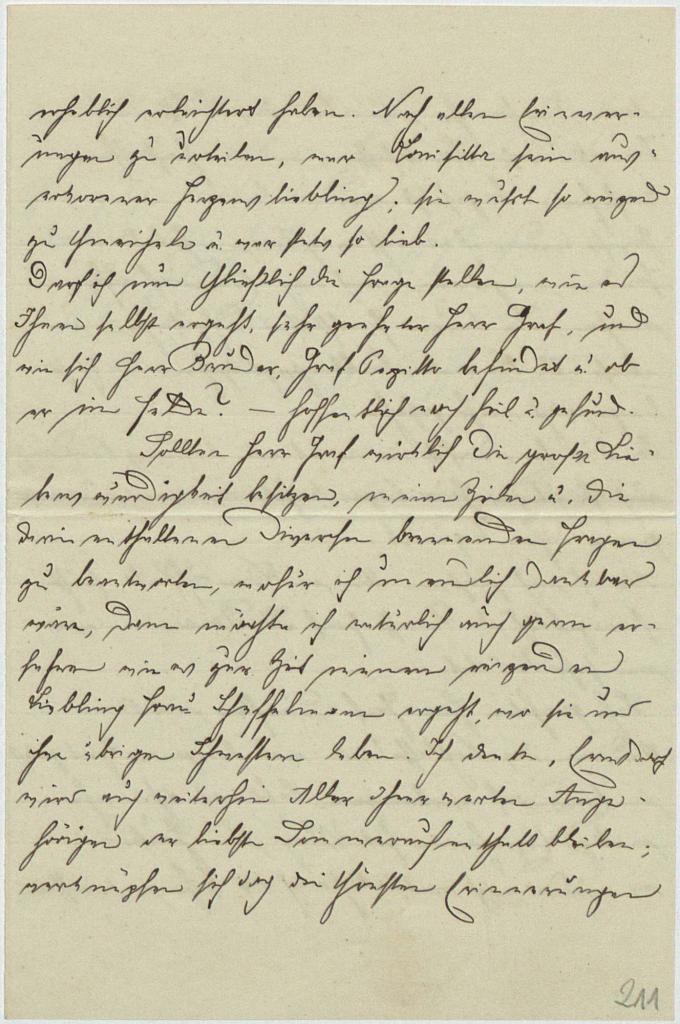 erheblich erleichtert haben. Nach allen Erinner-
ungen zu urteilen, war Louisitta sein aus-
erkorener Herzensliebling; sie wußt so reizend
zu schmeicheln u. war stets so lieb.
Darf ich nun schließlich die Frage stellen, wie es
Ihnen selbst ergeht, sehr geehrter Herr Graf, und
wie sich Herr Bruder, Graf Pepitto befindet u. ob
er im Felde? — hoffentlich noch heil u. gesund.
Sollten Herr Graf wirklich die große Lie-
benswürdigkeit besitzen, meine Zeilen u. die
darin enthaltenen diversen brennenden Fragen
zu beantworten, wofür ich unendlich dankbar
wäre, dann möchte ich natürlich auch gerne er-
fahren wie es zur Zeit meinem reizenden
Liebling Frau ergeht, wo sie und
ihre übrigen Schwestern leben. Ich denke,
wird auch weiterhin Aller Ihrer werten Ange-
hörigen der liebste Sommeraufenthalt bleiben;
verknüpfen sich doch die schönsten Erinnerungen
211